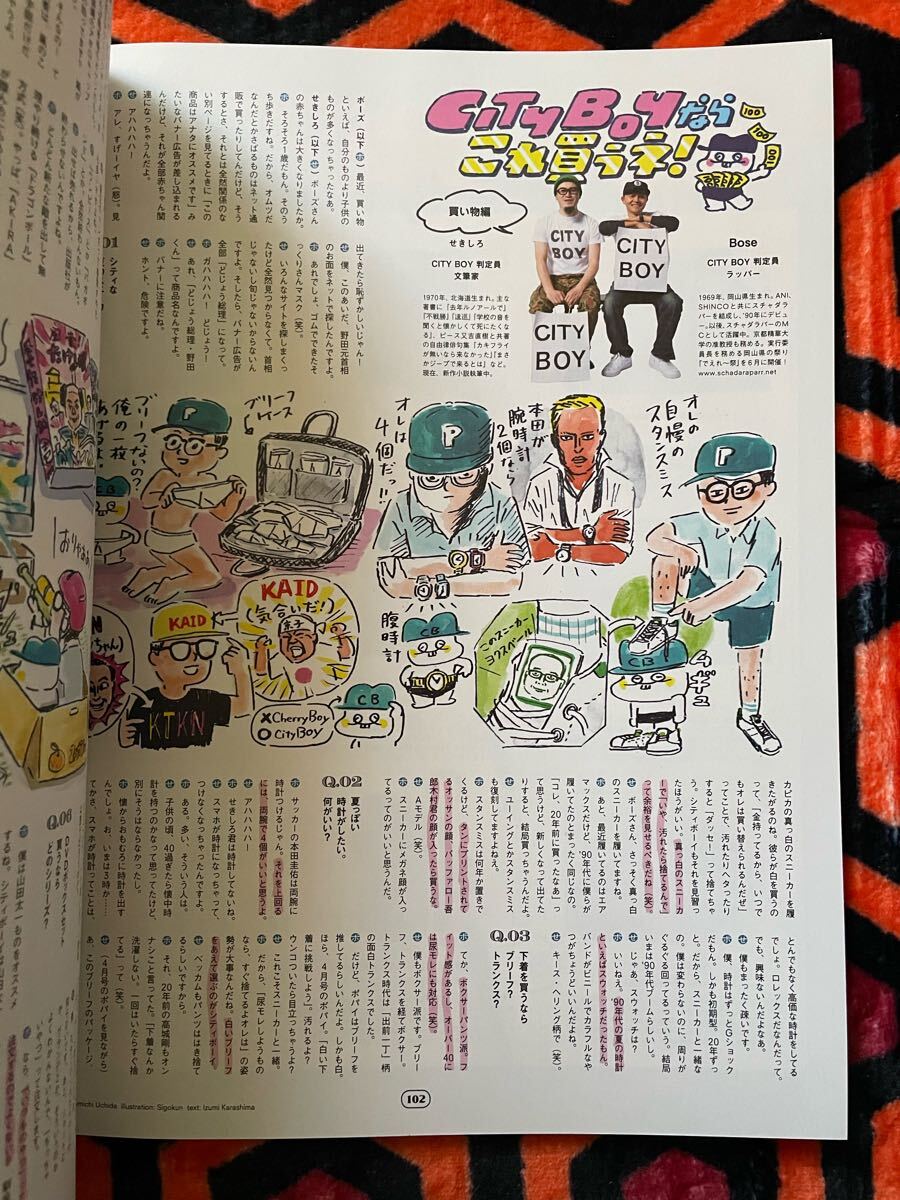 CITY BOYなら
これ買うネ!
100
100
買い物編
せきしろ
CITY BOY 判定員
文筆家
1970年、北海道生まれ。主な
著書に「去年ルノアールで」
CITY
BOY
CITY
BOY
CITY
BOY
Bose
CITY BOY 判定員
ラッパー
1969年、岡山県生まれ。ANI、
SHINCOと共にスチャダラ
パーを結成し、'90年にデビ
ュー。以後、スチャダラパーのM
Cとして活躍中。京都精華大
学の准教授も務める。実行委
員長を務める岡山県の祭り
「でえれ〜祭」を6月に開催!
www.schadaraparr.net
ボーズ(以下ボ)最近、買い物
といえば、自分のものより子供の
ものが多くなっちゃったなあ。
せきしろ(以下せ)ボーズさん
の赤ちゃんは大きくなりましたか。
ボ そろそろ1歳だもん。そのう
ち歩きだすね。だから、オムツだ
なんだとかさばるものはネット通
販で買ったりしてんだけど、そう
するとさ、それとは全然関係のな
い別ページを見てるときに「この
商品はアナタにオススメです」み
たいなバナー広告が差し込まれる
んだけど、それが全部赤ちゃん関
連になっちゃうんだよ。
せ アハハハハ!
ボ アレ、すげーイヤ(怒)。見
出てきたら恥ずかしいじゃーん!
せ 僕、このあいだ、野田元首相
のお面をネットで探したんですよ。
ボ あれでしょ、ゴムでできたそ
っくりさんマスク(笑)。
せ いろんなサイトを探しまくっ
たけど全然見つからなくて。首相
じゃないし旬じゃないからないん
ですよ。そしたら、バナー広告が
全部「どじょう総理」になって。
ボ ガハハハハ! どじょう!
せ あれ、「どじょう総理・野田
くん」って商品名なんですよ。
ボ バナーに注意だね。
せ ホント、危険ですよ。
シティな
オレの
自慢の
スタンスミス
P
本田が
腕時計
2個なら
オレは
4個だっ!!
P
ブリーフ
ケース
P
ブリーフないの?
俺の一枚
あげるよ!
KAID
KAID
気合いだ!
京子
KTKN
ちゃん
CB
×CherryBoy
○CityBoy
腹時計
CB
このスニーカー
ヨクスベール
CB
ムギュ
カピカの真っ白のスニーカーを履
きたがるのね。彼らが白を買うの
って、「金持ってるから、いつで
もオレは買い替えられるんだぜ」
ってことで、汚れたりヘタったり
すると「ダッセー!」って捨てちゃ
う。シティボーイもそれを見習っ
たほうがいい。真っ白のスニーカ
ーで「いや、汚れたら捨てるんで」
って余裕を見せるべきだね(笑)。
せ ボーズさん、さっそく真っ白
のスニーカーを履いてますね。
ボ あと、最近履いてるのはエア
マックスだけど、'90年代に僕らが
履いてたのとまったく同じなの。
「コレ、20年前に買ったなあ」っ
て思うけど、新しくなって出てた
りすると、結局買っちゃうんだよ。
せ ユーイングとかスタンスミス
も復刻してますよねえ。
ボ スタンスミスは何年か置きで
くるけど、タンにプリントされて
るオッサンの顔、バッファロー吾
郎木村君の顔が入ったら買うな。
せ Aモデル(笑)。
ボ スニーカーにメガネ顔が入っ
てるってのがいいと思うんだ。
Q.02
夏っぽい
時計がしたい。
何がいい?
ボ サッカーの本田圭佑は両腕に
時計つけるじゃん。それを上回る
には、両腕で4個がいいと思うよ。
せ アハハハハ!
ボ せきしろ君は時計してないね。
せ スマホが時計になっちゃって、
つけなくなっちゃったんですよ。
ボ ある。多い、そういう人は。
せ 子供の頃、40過ぎたら懐中時
計を持つのかなって思ってたけど、
別にそうはならなかったし。
ボ 懐からおもむろに時計を出す
んでしょ。お、いまは3時か……。
てかさ、スマホが時計ってことは、
とんでもなく高価な時計をしてる
でしょ。ロレックスだなんだって。
でも、興味ないんだよなあ。
せ 僕もまったく疎いです。
ボ 僕、時計はずっとGショック
だもん。しかも初期型。20年ずっ
と一緒。だから、スニーカーと一緒な
の。僕は変わらないのに、周りが
ぐるぐる回ってるっていう。結局
いまは90年代ブームらしいし。
せ じゃあ、スウォッチは?
ボ いいねえ。'90年代の夏の時計
といえばスウォッチだったもん。
バンドがビニールでカラフルなや
つがちょうどいいんだよね。
せ キース・ヘリング柄で(笑)。
Q.03
下着を買うなら
ブリーフ?
トランクス?
ボ てか、ボクサーパンツ派。フ
ィット感があるし、オーバー40に
は尿モレにも対応(笑)。
せ 僕もボクサー派です。ブリー
フ、トランクスを経てボクサー。
トランクス時代は「出前一丁」柄
の面白トランクスでした。
ボ だけど、ポパイはブリーフを
推してるらしいんだよ。しかも白。
ほら、4月号のポパイ。「白い下
着に挑戦しよう」。汚れるよ?
ウンコついたら目立っちゃうよ?
せ これこそスニーカーと一緒。
ボ だから、「尿モレしようもの
なら、すぐ捨てるよオレは」の姿
勢が大事なんだね。白いブリーフ
をあえて選ぶのがシティボーイ。
せ ベッカムもパンツはすぐ捨て
るらしいですから。
ボ それ、20年前の高城剛もオン
ナシこと言ってた。「下着なんか
洗濯しない。一回はいたらすぐ捨
てる」って(笑)。
せ (4月号のポパイを見ながら)
あ、このブリーフのパッケージ、
Q.06
102
michi Uchida illustration: Sigokun text: Izumi Karashima